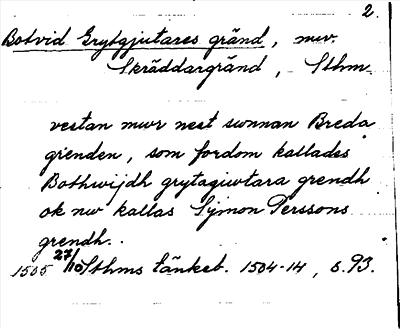 2.
Botvid Grytgjutares gränd, nuv.
Skräddargränd, Sthm.
vestan mwr nest swnnan Breda
grenden, som fordom kallades
Bothwijdh grytagiwtara grendh
ok nw kallas Symon Perssons
grendh.
1505 27/10 Sthms tänkeb. 1504-14, s. 93.